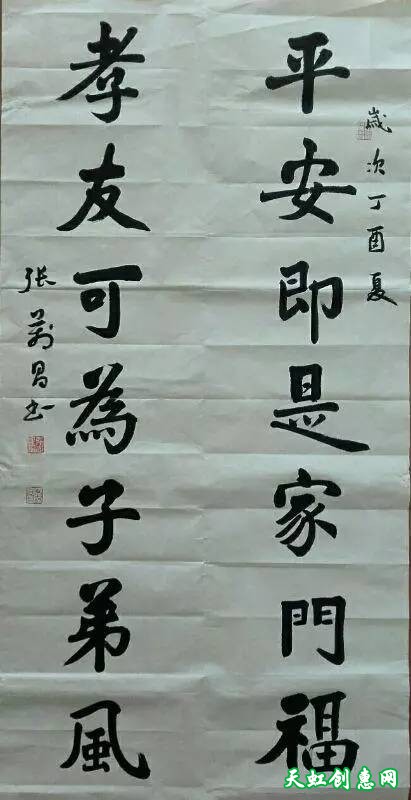 歲次丁酉夏
平安即是家門福
孝友可為子弟風
張萬昌书
天虹创惠网